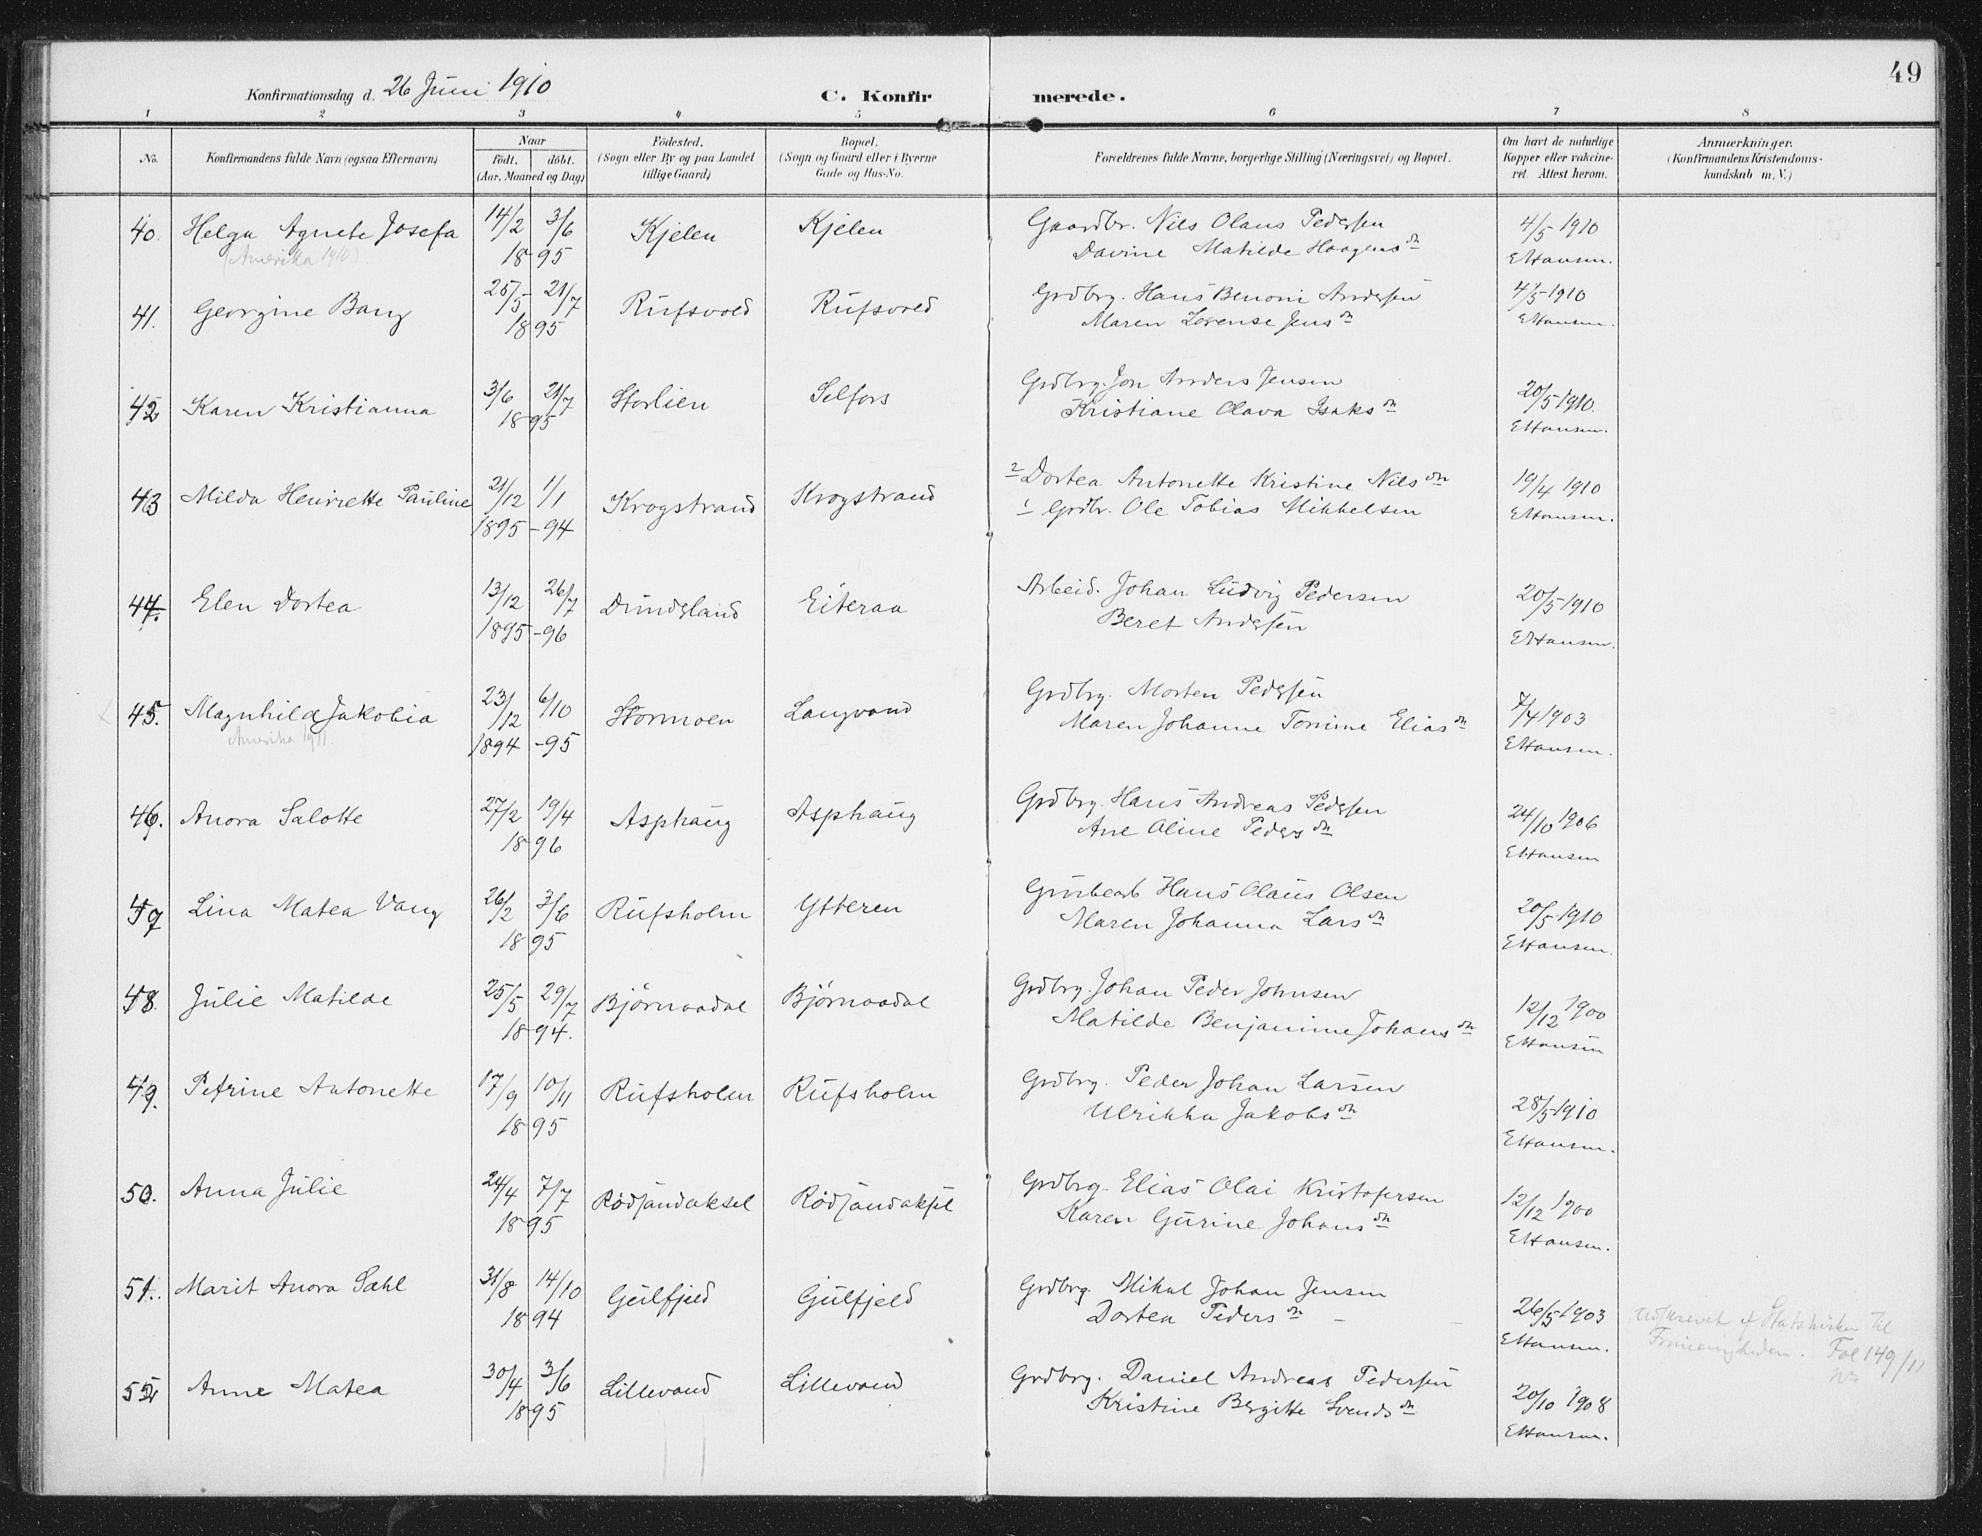 49
Konfirmationsdag d. 26 Juni 1910
C. Konfirmerede.
1 2 3 4 5 6 7 8
No.
Konfirmandens fulde Navn (ogsaa Efternavn)
Naar
født. døbt.
(Aar, Maaned og Dag)
Fødested.
(Sogn eller By og paa Landet
tillige Gaard)
Bopæl.
(Sogn og Gaard eller i Byerne
Gade og Hus-No.
Forældrenes fulde Navne, borgerlige Stilling (Næringsvei) og Bopæl.
Om havt de naturlige
Kopper eller vakcine-
ret Attest herom.
Anmærkninger.
(Konfirmandens Kristendoms-
kundskab m. V.)
40. Helga Agnete Josefa 14/2 3/6 Kjelen Kjelen Gaardbr. Nils Olaus Pedersen 4/5 1910
(Amerika 1910). 1895 Davine Matilde Haagensdn EHansen.
41. Georgine Bang 25/5 21/7 Rufsvold Rufsvold Grdbrg. Hans Benoni Andersen 4/5 1910
1895 Maren Lorense Jensdn EHansen.
42 Karen Kristianna 3/6 21/7 Storlien Selfors Grdbrg. Jon Anders Jensen 20/5 1910.
1895 Kristiane Olava Isaksdn EHansen.
43 Milda Henriette Pauline 21/12 1/1 Krogstrand Krogstrand 2 Dortea Antonette Kristine Nilsdn 19/4 1910
1895-94 1 Grdbr. Ole Tobias Mikkelsen EHansen.
44. Elen Dortea 13/12 26/7 Dunderland Eiteraa Arbeid. Johan Ludvig Pedersen 20/5 1910
1895-96 Beret Andersen EHansen.
45. Magnhild Jakobia 23/12 6/10 Stormoen Langvand Grdbrg. Morten Pedersen 7/4 1903
Amerika 1911. 1894-95 Maren Johanne Tomine Eliasdn EHansen.
46. Anora Salotte 27/2 19/4 Asphaug Asphaug Grdbrg. Hans Andreas Pedersen 24/10 1906
1896 Ane Oline Pedersdn EHansen
47 Lina Matea Vang 26/2 3/6 Rufsholm Ytteren Grubearb Hans Olaus Olsen 20/5 1910
1895 Maren Johanna Larsdn EHansen.
48. Julie Matilde 25/5 29/7 Bjørnaadal Bjørnaadal Grdbrg. Johan Peder Johnsen 12/12 1900
1894. Matilde Benjamine Johansdn EHansen
49. Petrine Antonette 17/9 10/11 Rufsholm Rufsholm Grdbrg. Peder Johan Larsen 28/5 1910
1895 Ulrikka Jakobsdn EHansen.
50. Anna Julie 24/4 7/7 Rødsandaksel Rødsandaksel Grdbrg. Elias Olai Kristofersen 12/12 1900
1895 Karen Gurine Johansdn EHansen.
51. Marit Anora Sæhl 31/8 14/10 Gulfjeld Gulfjeld Grdbrg. Mikal Johan Jensen 26/5 1903
1894 Dortea Pedersdn EHansen. Udskrevet af Statskirken til
Frimenigheden. Fol 149/11
52 Anne Matea 30/4 3/6 Lillevand Lillevand Grdbrg. Daniel Andreas Pedersen 20/10 1908
1895 Kristine Bergitte Svendsdn EHansen.